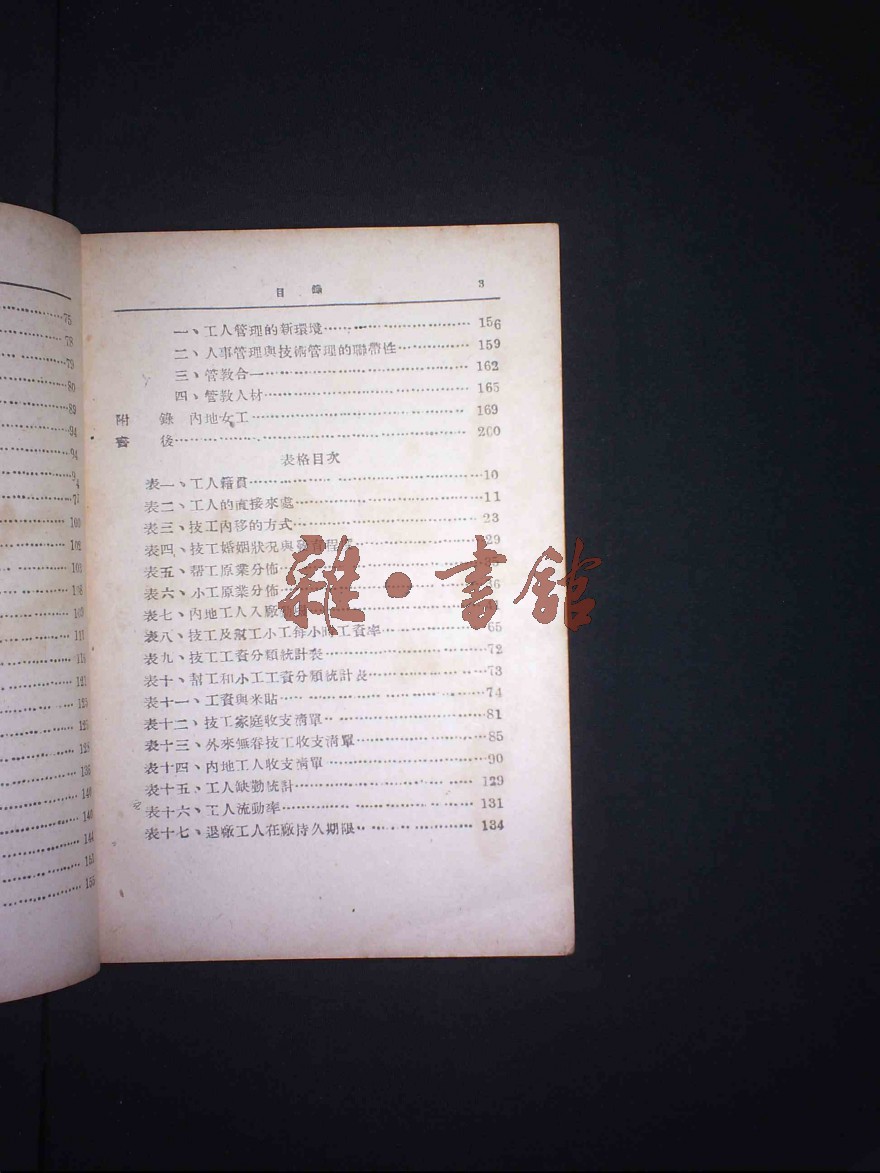 75
78
79
80
89
94
94
94
97
100
102
103
108
109
113
121
123
125
128
136
140
140
144
151
155
目錄 3
一、工人管理的新環境 156
二、人事管理與技術管理的聯帶性 159
三、管教合一 162
四、管教人材 165
附錄 內地女工 169
書後 200
表格目次
表一、工人籍貫 10
表二、工人的直接來處 11
表三、技工內移的方式 23
表四、技工婚姻狀況與教育程度 29
表五、幫工原業分佈
表六、小工原業分佈 36
表七、內地工人入廠
表八、技工及幫工小工每小時工資率 65
表九、技工工資分類統計表 72
表十、幫工和小工工資分類統計表 73
表十一、工資與米貼 74
表十二、技工家庭收支清單 81
表十三、外來無眷技工收支清單 85
表十四、內地工人收支清單 90
表十五、工人缺勤統計 129
表十六、工人流動率 131
表十七、退廠工人在廠持久期限 134
雜·書館